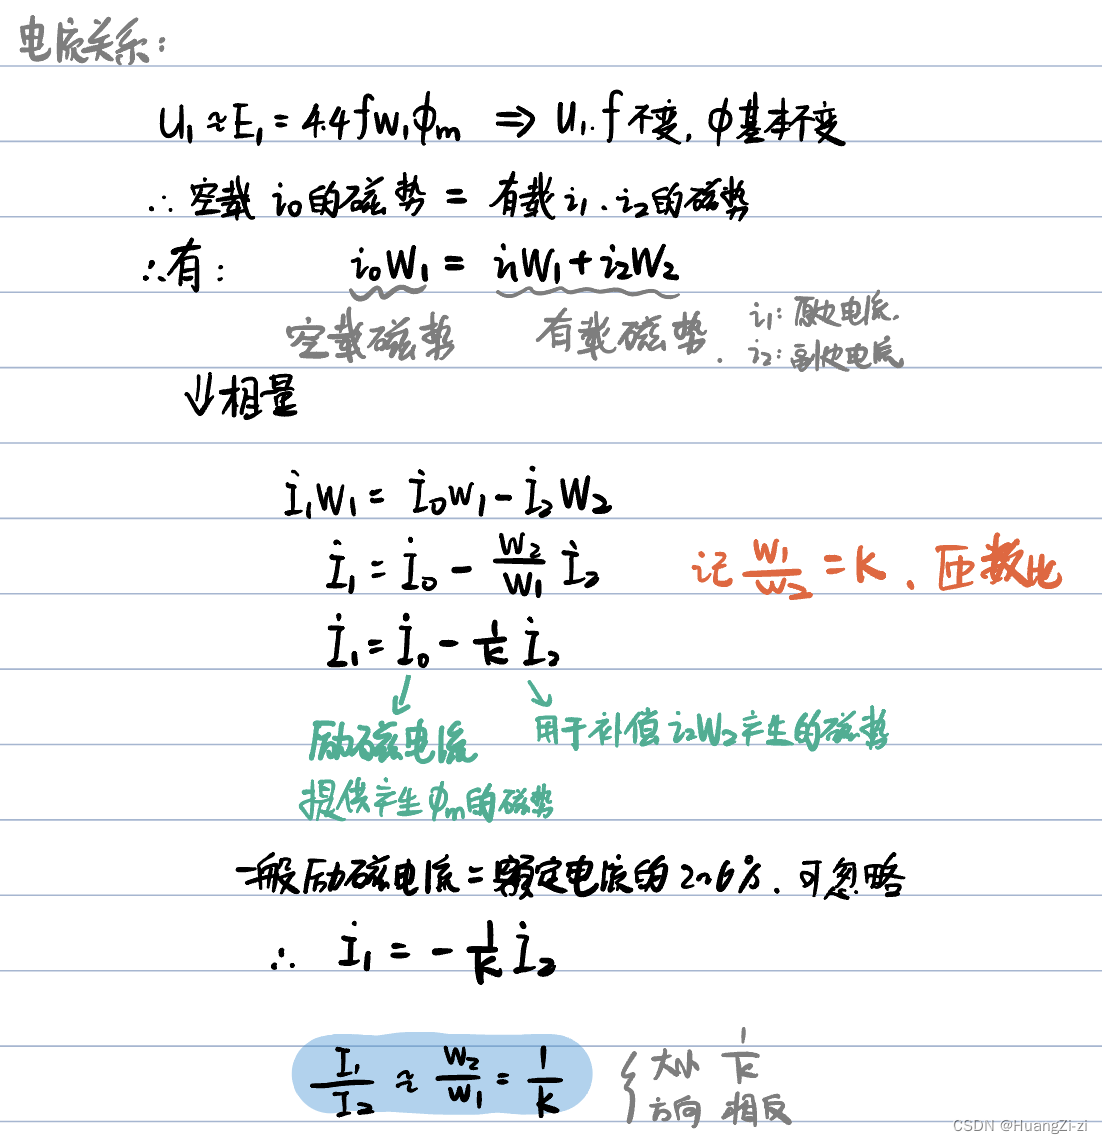 电流关系：
U₁≈E₁=4.4fw₁ϕm ⇒ U₁.f不变,ϕ基本不变
∴空载 i₀的磁势 = 有载i₁.i₂的磁势
∴有： i₀W₁ = i₁W₁+i₂W₂
空载磁势 有载磁势. i₁：原边电流.
i₂：副边电流
⇓相量
İ₁W₁ = İ₀w₁-İ₂W₂
İ₁ = İ₀ - W₂/W₁ İ₂ 记 W₁/W₂ = K . 匝数比
İ₁ = İ₀ - 1/K İ₂
励磁电流 用于补偿 i₂W₂产生的磁势
提供产生ϕm的磁势
一般励磁电流=额定电流的2~6%.可忽略
∴ İ₁ = - 1/K İ₂
I₁/I₂ ≈ W₂/W₁ = 1/K { 大小 1/K
方向 相反
CSDN @HuangZi-zi